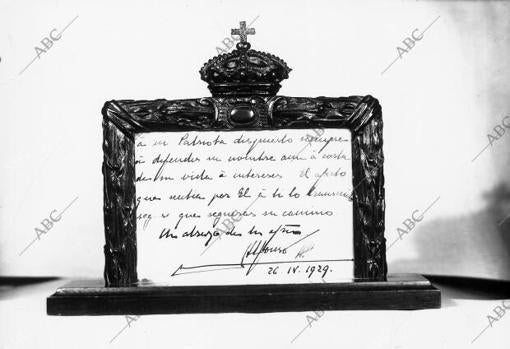 a un Patriota dispuesto siempre
á defender su nombre aun á costa
de su vida é intereses El afecto
que sentia por El á ti lo
seguirás su camino
Un abrazo de tu afmo
Alfonso R.
26. IV. 1929.
ABC
ABC
ABC
ABC
ABC
ABC
ABC
ABC
ABC